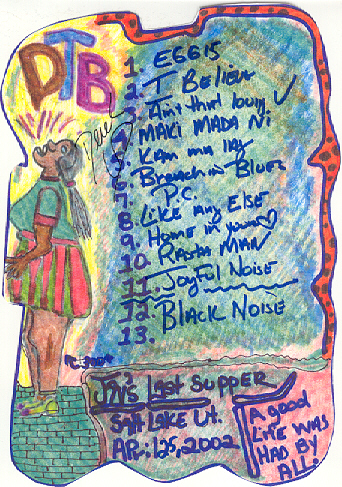 DTB
1. EGGIS
2. I Believe
3. Ain't that lovin ✓
4. MAKI MADA Ni
5. Kam ma lay
6. Breach in Blues
7. P.C.
8. LIKE any ELSE
9. Home in your ♡
10. RASTA MAN
11. JoyFul NOISE
12. BLACK NOISE
13.
JN's Last SUPPER
Salt LAKE Ut.
APRil 25, 2002
A good
LIFE WAS
HAD BY
ALL.